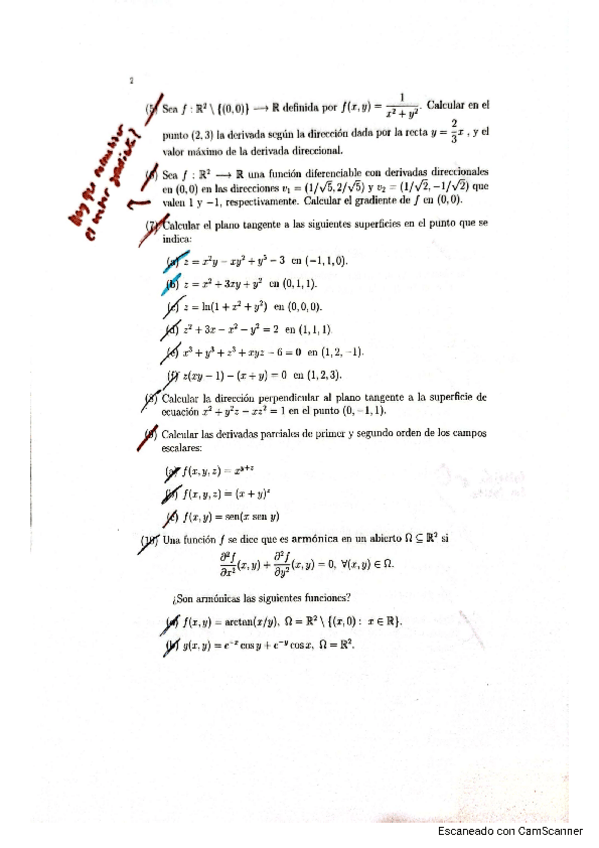 2
(5) Sea f : ℝ² \ {(0,0)} ⟶ ℝ definida por f(x,y) = 1/(x² + y²). Calcular en el
punto (2,3) la derivada según la dirección dada por la recta y = 2/3 x , y el
valor máximo de la derivada direccional.
Hay que
el vector gradiente?
(6) Sea f : ℝ² ⟶ ℝ una función diferenciable con derivadas direccionales
en (0,0) en las direcciones v₁ = (1/√5, 2/√5) y v₂ = (1/√2, −1/√2) que
valen 1 y −1, respectivamente. Calcular el gradiente de f en (0,0).
(7) Calcular el plano tangente a las siguientes superficies en el punto que se
indica:
(a) z = x²y − xy² + y⁵ − 3 en (−1,1,0).
(b) z = x² + 3xy + y² en (0,1,1).
(c) z = ln(1 + x² + y²) en (0,0,0).
(d) z² + 3x − x² − y² = 2 en (1,1,1)
(e) x³ + y³ + z³ + xyz − 6 = 0 en (1,2,−1).
(f) z(xy − 1) − (x + y) = 0 en (1,2,3).
(8) Calcular la dirección perpendicular al plano tangente a la superficie de
ecuación x² + y²z − xz² = 1 en el punto (0,−1,1).
(9) Calcular las derivadas parciales de primer y segundo orden de los campos
escalares:
(a) f(x,y,z) = x^(y+z)
(b) f(x,y,z) = (x + y)^z
(c) f(x,y) = sen(x sen y)
(10) Una función f se dice que es armónica en un abierto Ω ⊆ ℝ² si
∂²f/∂x² (x,y) + ∂²f/∂y² (x,y) = 0, ∀(x,y) ∈ Ω.
¿Son armónicas las siguientes funciones?
(a) f(x,y) = arctan(x/y), Ω = ℝ² \ {(x,0) : x ∈ ℝ}.
(b) g(x,y) = e⁻ˣ cos y + e⁻ʸ cos x, Ω = ℝ².
Escaneado con CamScanner